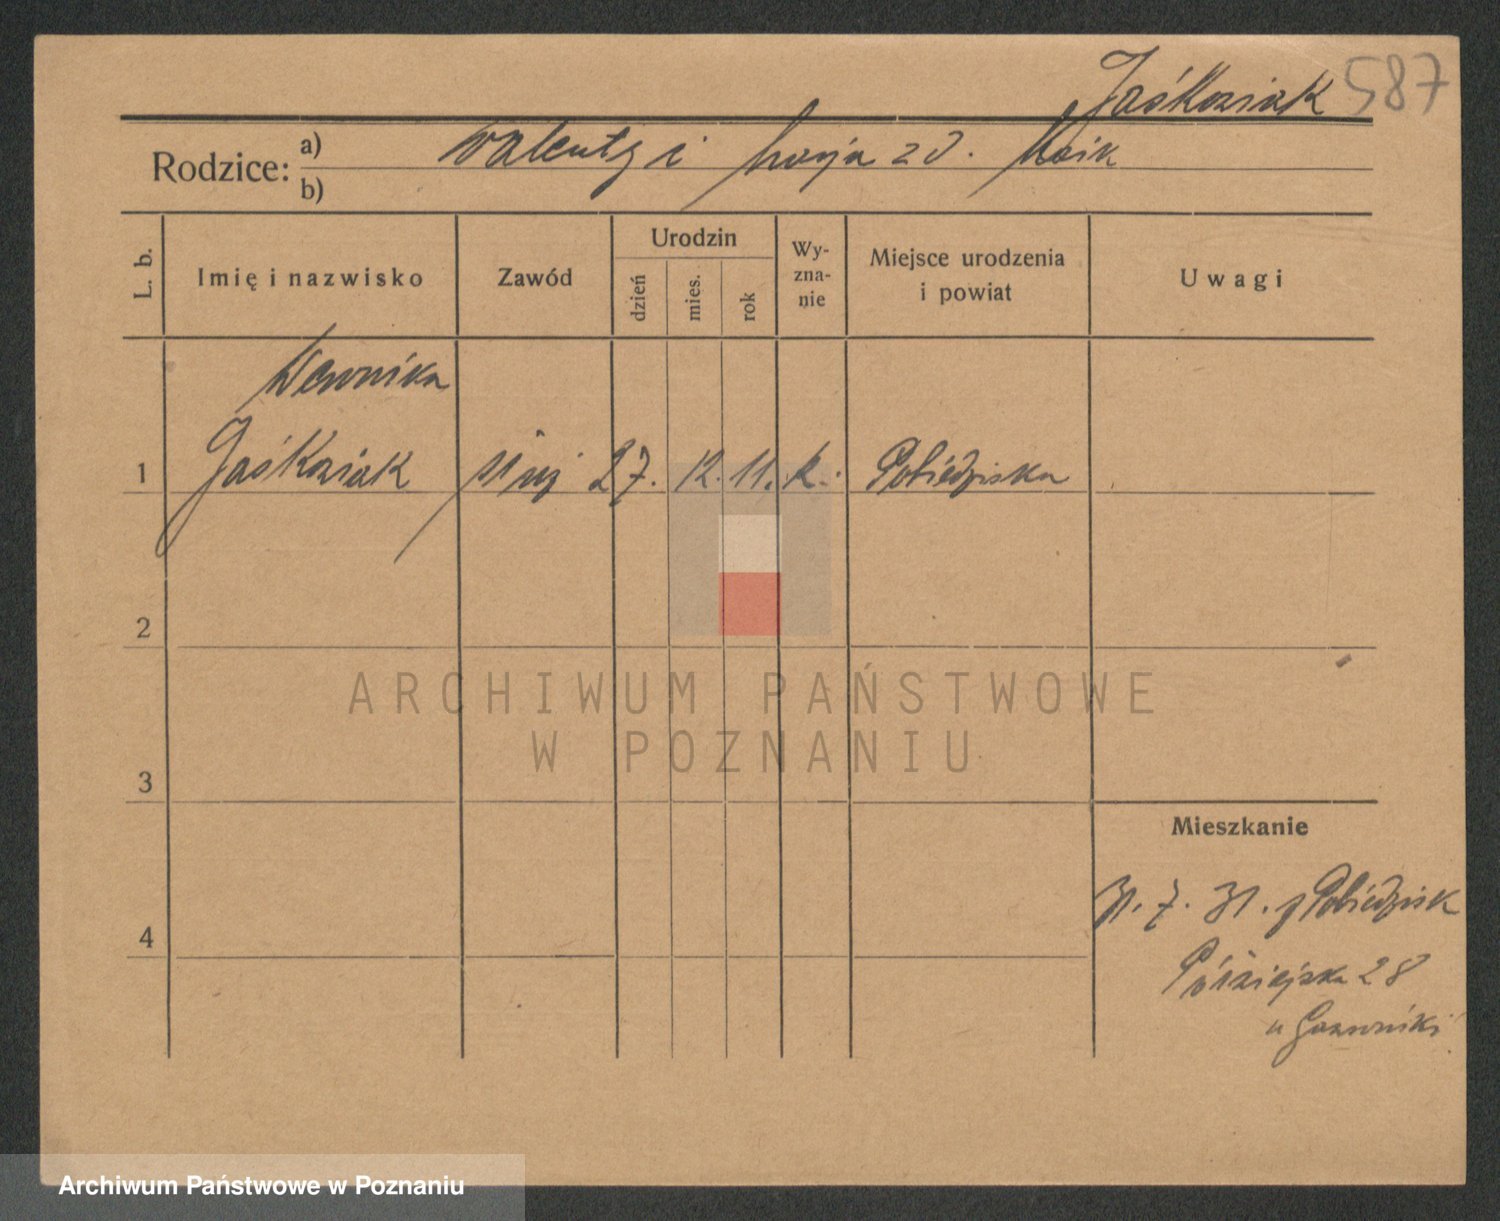 Jaśkoziak 587
Rodzice: a) Walenty i zd.
b)
L. b.
Imię i nazwisko
Zawód
Urodzin
dzień
mies.
rok
Wy-
zna-
nie
Miejsce urodzenia
i powiat
Uwagi
Weronika
1 Jaśkoziak służ 27. 12. 11. k. Pobiedziska
2
3
4
Mieszkanie
31. 7. 31. z Pobiedzisk
28
u
ARCHIWUM PAŃSTWOWE
W POZNANIU
Archiwum Państwowe w Poznaniu